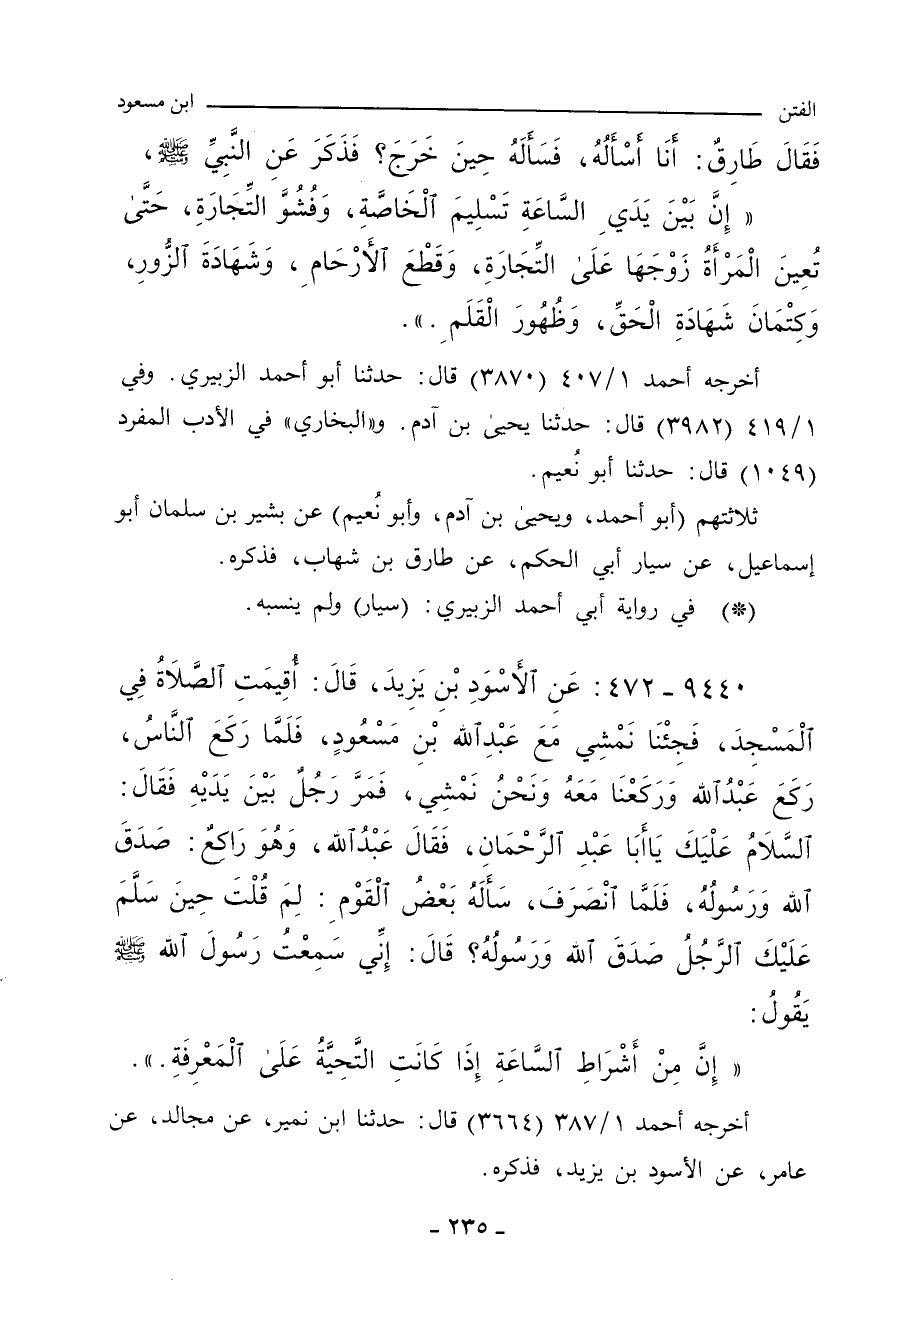 الفتن ـــــــــ ابن مسعود
فَقَالَ طَارِقٌ: أَنَا أَسْأَلُهُ، فَسَأَلَهُ حِينَ خَرَجَ؟ فَذَكَرَ عَنِ النَّبِيِّ ﷺ،
« إِنَّ بَيْنَ يَدَيِ السَّاعَةِ تَسْلِيمَ ٱلْخَاصَّةِ، وَفُشُوَّ التِّجَارَةِ، حَتَّىٰ
تُعِينَ الْمَرْأَةُ زَوْجَهَا عَلَىٰ التِّجَارَةِ، وَقَطْعَ ٱلأَرْحَامِ، وَشَهَادَةَ ٱلزُّورِ،
وَكِتْمَانَ شَهَادَةِ الْحَقِّ، وَظُهُورَ الْقَلَمِ.».
أخرجه أحمد ١/٤٠٧ (٣٨٧٠) قال: حدثنا أبو أحمد الزبيري. وفي
١/٤١٩ (٣٩٨٢) قال: حدثنا يحيىٰ بن آدم. و«البخاري» في الأدب المفرد
(١٠٤٩) قال: حدثنا أبو نُعيم.
ثلاثتهم (أبو أحمد، ويحيىٰ بن آدم، وأبو نُعيم) عن بشير بن سلمان أبو
إسماعيل، عن سيار أبي الحكم، عن طارق بن شهاب، فذكره.
(*) في رواية أبي أحمد الزبيري: (سيار) ولم ينسبه.
٩٤٤٠ ـ ٤٧٢: عَنِ ٱلأَسْوَدِ بْنِ يَزِيدَ، قَالَ: أُقِيمَتِ ٱلصَّلَاةُ فِي
ٱلْمَسْجِدَ، فَجِئْنَا نَمْشِي مَعَ عَبْدِٱلله بْنِ مَسْعُودٍ، فَلَمَّا رَكَعَ ٱلنَّاسُ،
رَكَعَ عَبْدُٱلله وَرَكَعْنَا مَعَهُ وَنَحْنُ نَمْشِي، فَمَرَّ رَجُلٌ بَيْنَ يَدَيْهِ فَقَالَ:
ٱلسَّلَامُ عَلَيْكَ يَاأَبَا عَبْدِ ٱلرَّحْمَانِ، فَقَالَ عَبْدُٱلله، وَهُوَ رَاكِعٌ: صَدَقَ
ٱلله وَرَسُولُهُ، فَلَمَّا ٱنْصَرَفَ، سَأَلَهُ بَعْضُ ٱلْقَوْمِ: لِمَ قُلْتَ حِينَ سَلَّمَ
عَلَيْكَ ٱلرَّجُلُ صَدَقَ ٱلله وَرَسُولُهُ؟ قَالَ: إِنِّي سَمِعْتُ رَسُولَ ٱلله ﷺ
يَقُولُ:
« إِنَّ مِنْ أَشْرَاطِ ٱلسَّاعَةِ إِذَا كَانَتِ التَّحِيَّةُ عَلَىٰ ٱلْمَعْرِفَةِ.».
أخرجه أحمد ١/٣٨٧ (٣٦٦٤) قال: حدثنا ابن نمير، عن مجالد، عن
عامر، عن الأسود بن يزيد، فذكره.
ـ ٢٣٥ ـ